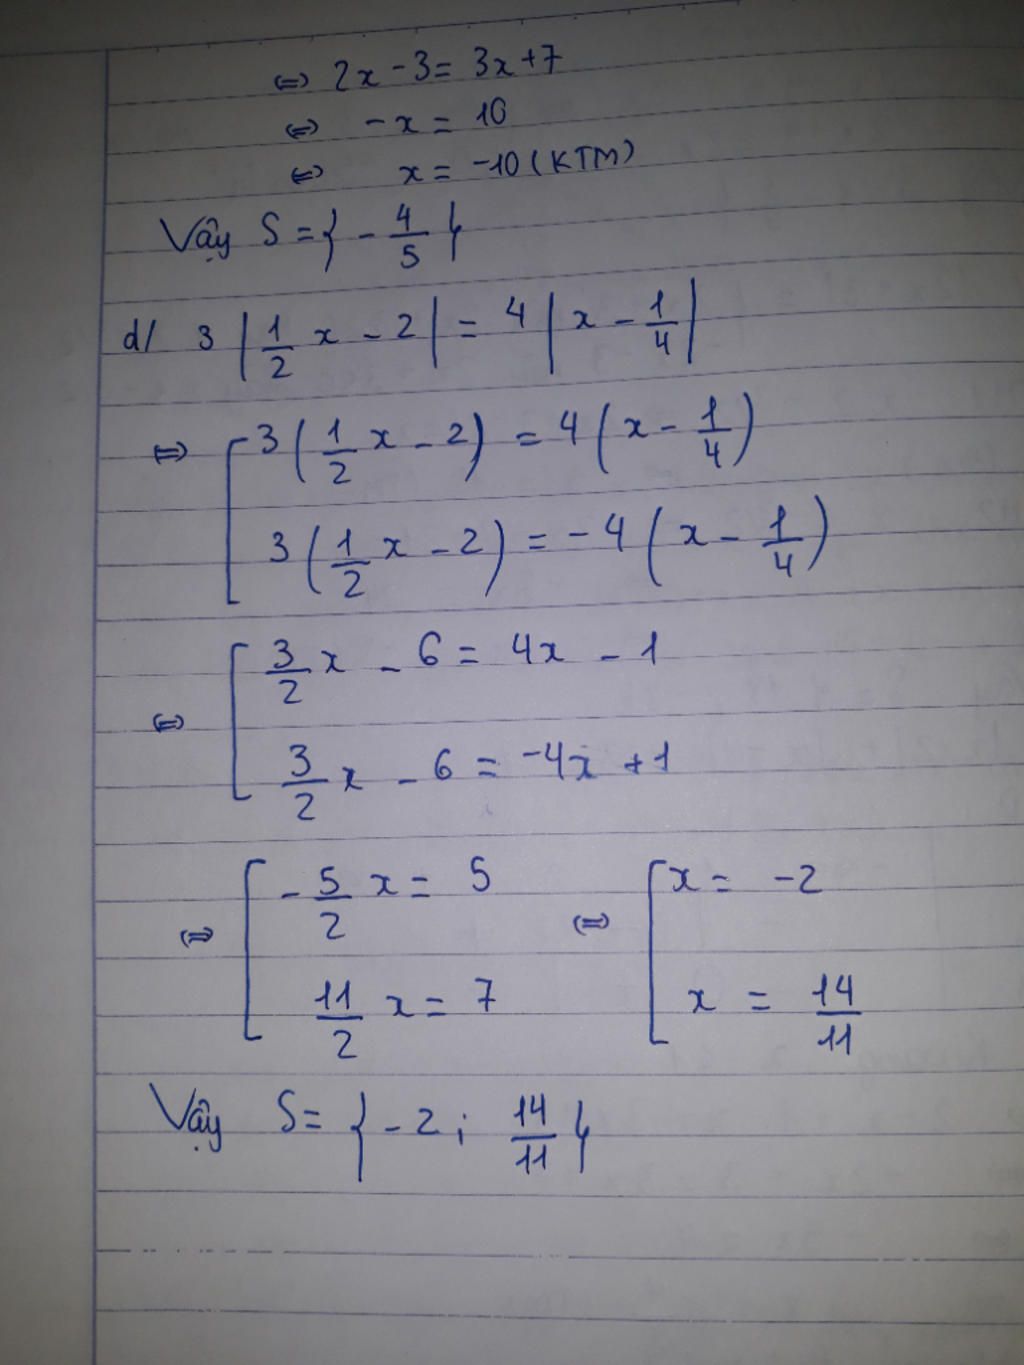 ⇔ 2x - 3 = 3x + 7
⇔ -x = 10
⇔ x = -10 (KTM)
Vậy S = { - 4/5 }
d/ 3 | 1/2 x - 2 | = 4 | x - 1/4 |
⇔ [ 3 ( 1/2 x - 2 ) = 4 ( x - 1/4 )
3 ( 1/2 x - 2 ) = - 4 ( x - 1/4 )
⇔ [ 3/2 x - 6 = 4x - 1
3/2 x - 6 = -4x + 1
⇔ [ - 5/2 x = 5 ⇔ [ x = -2
11/2 x = 7 x = 14/11
Vậy S = { - 2 ; 14/11 }